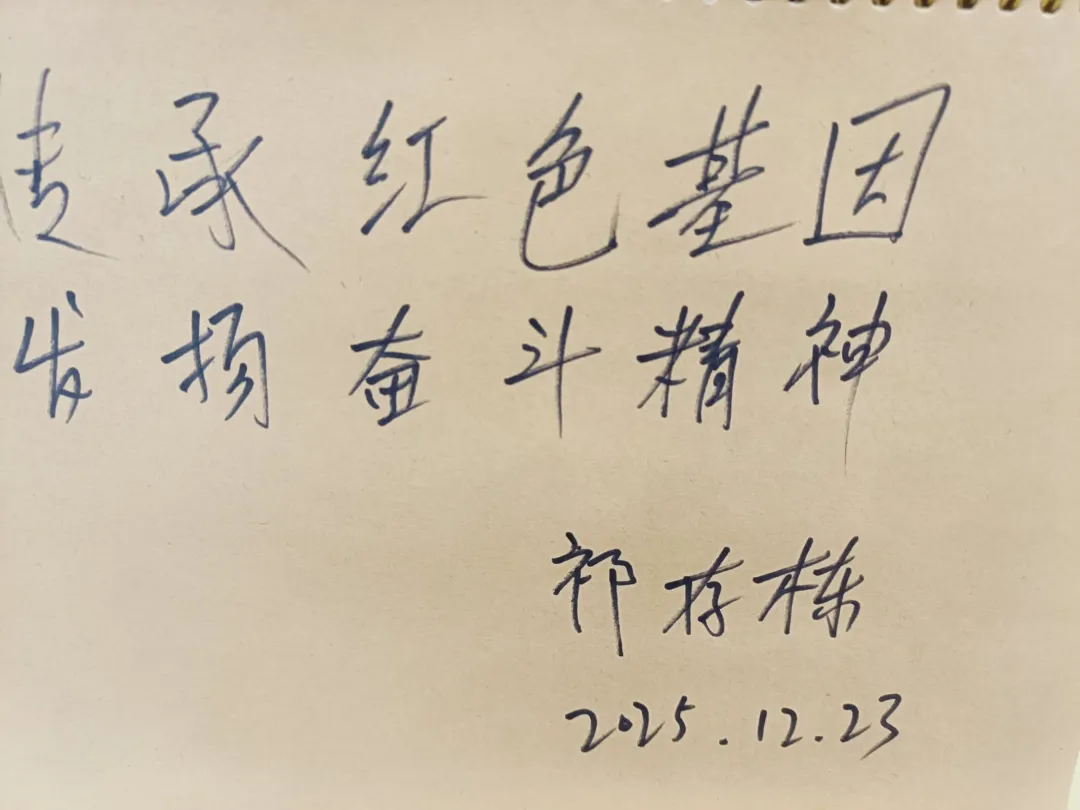 传承红色基因
发扬奋斗精神
祁存栋
2025.12.23